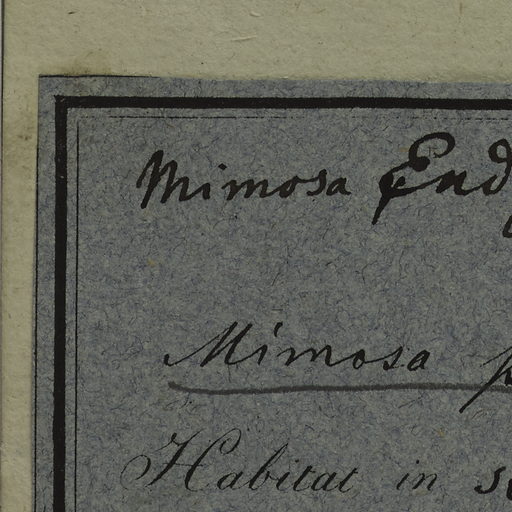 Mimosa
Mimosa
Habitat in